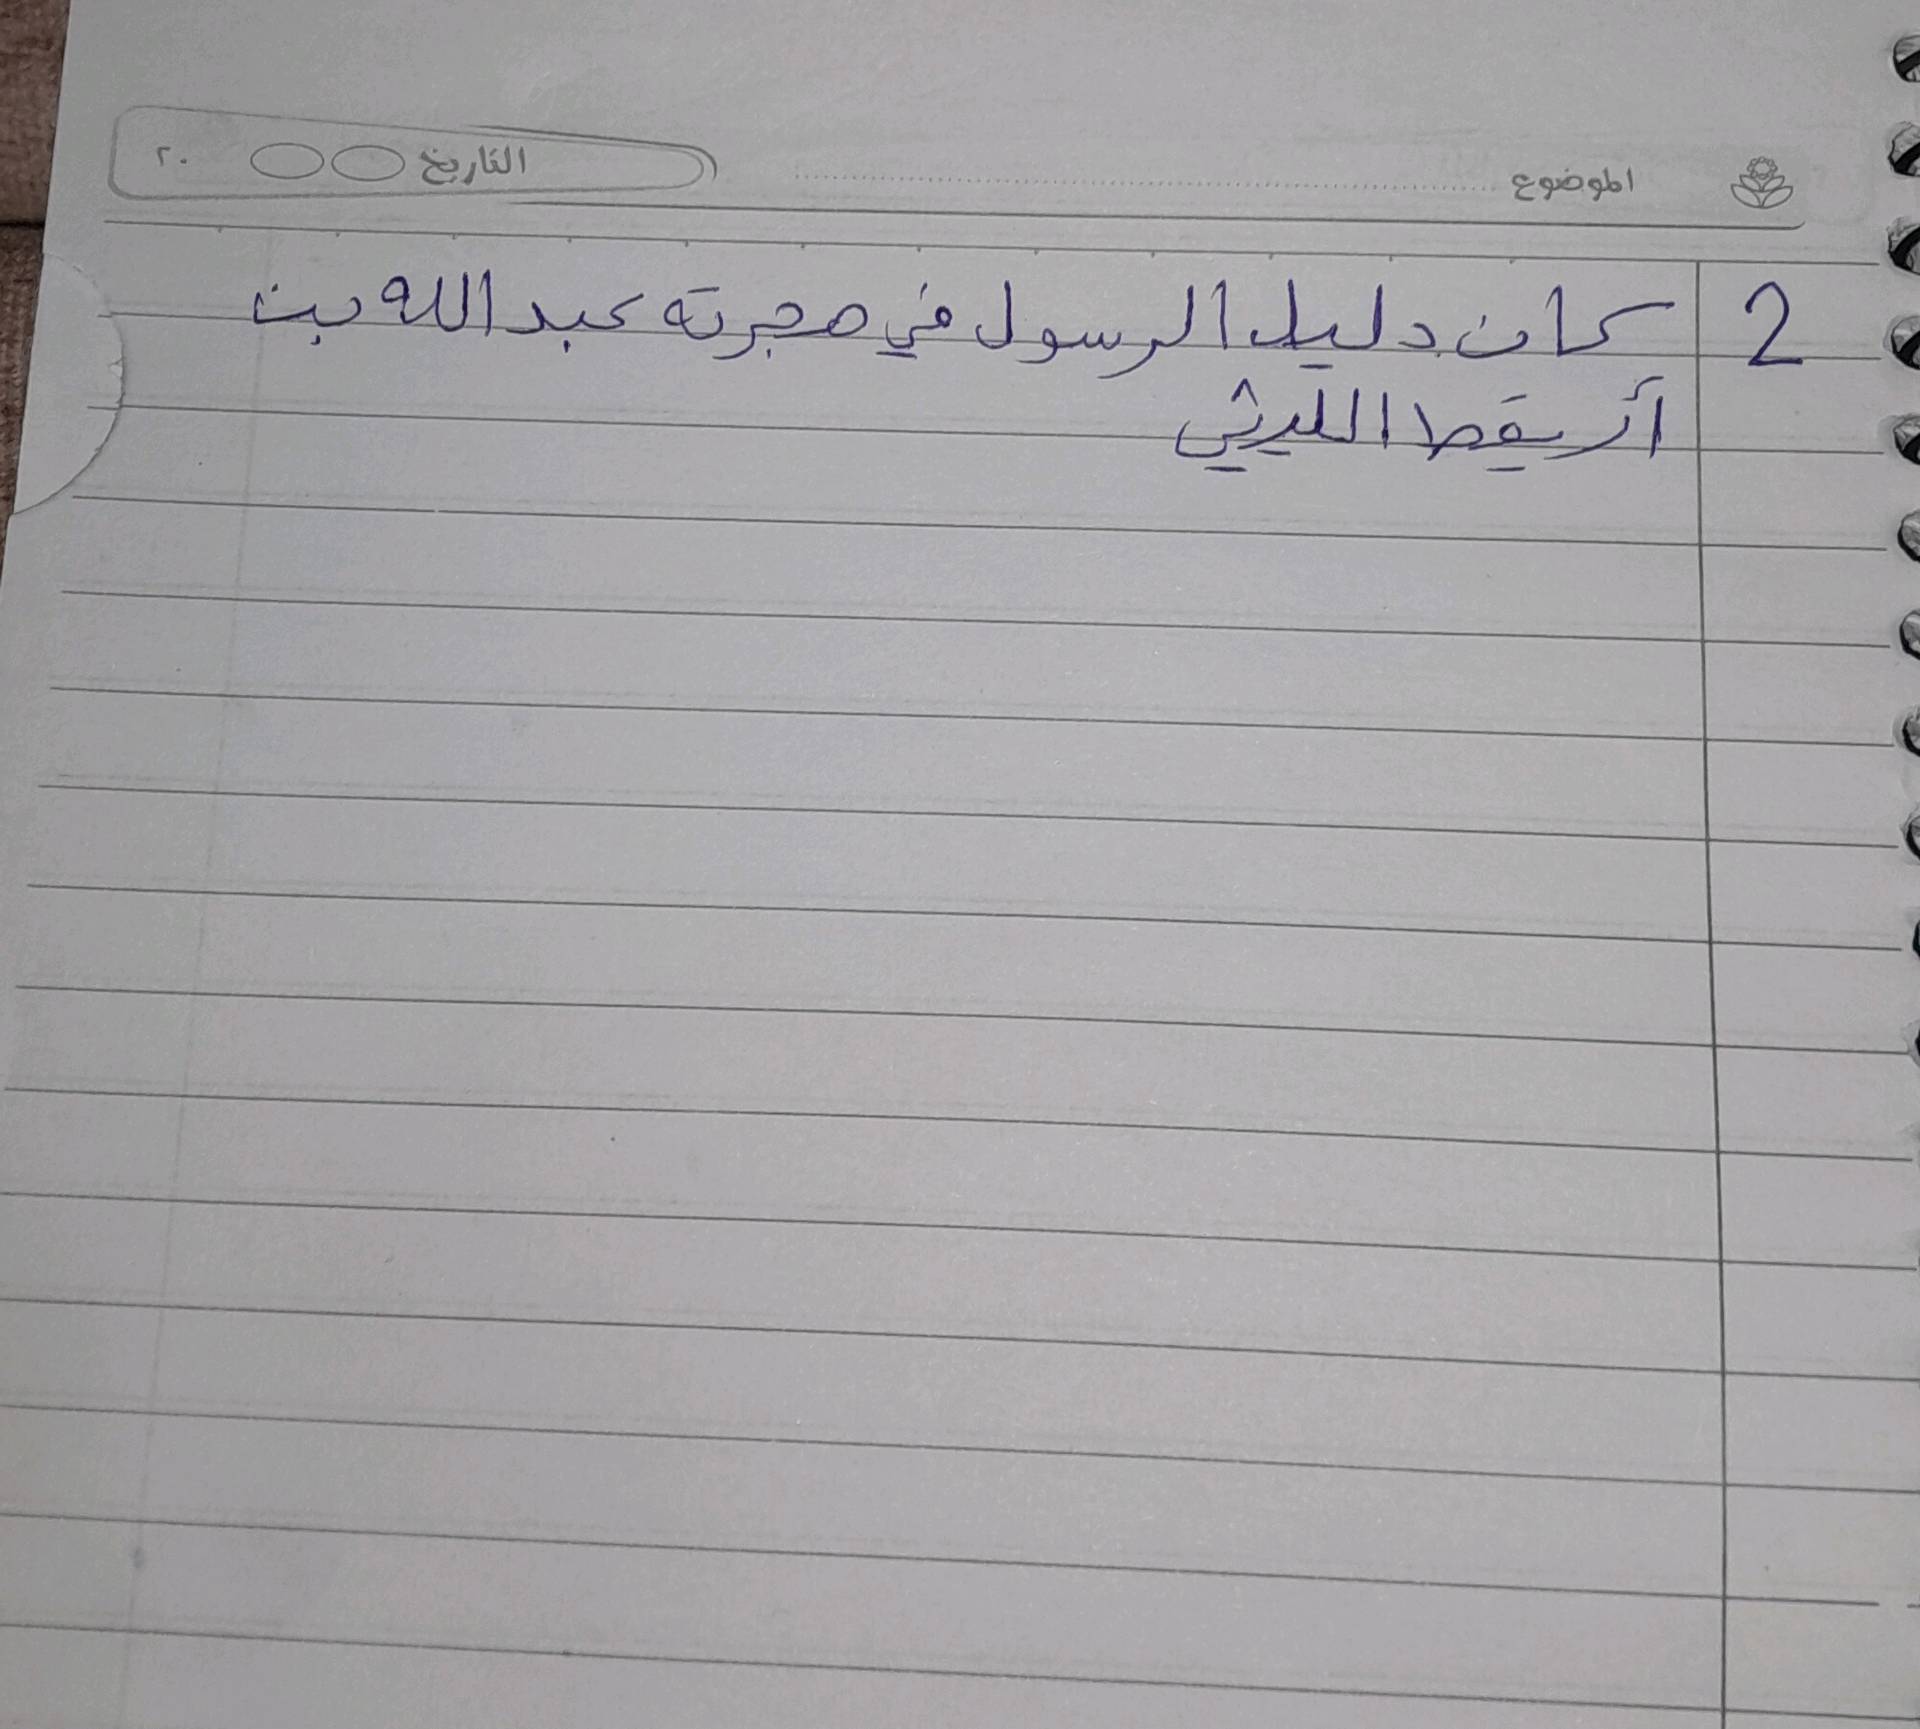 الموضوع التاريخ ٢٠
2 كان دليل الرسول في هجرته عبد الله بن
أريقط الليثي